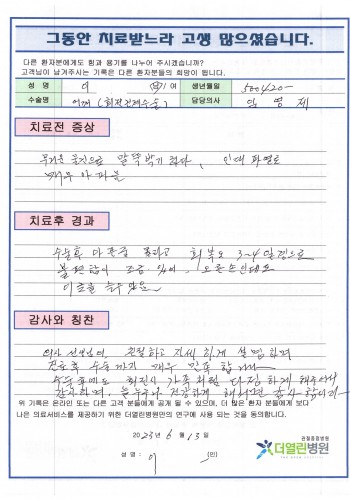 그동안 치료받느라 고생 많으셨습니다.
다른 환자분에게도 힘과 용기를 나누어 주시겠습니까?
고객님이 남겨주시는 기록은 다른 환자분들의 희망이 됩니다.
성 명 이 여 생년월일 500420-
수술명 어깨 (회전근개수술) 담당의사 임경제
치료전 증상
무거운 물건으로 말뚝박기 하다, 인대 파열로
매우 아파옴
치료후 경과
수술후 마른손 회복도 3~4일정도
불편함이 조금 있어, 오른손인데도
이손을 쓸수있음
감사와 칭찬
의사 선생님이 친절하고 자세하게 설명하며
수술까지 매우 만족합니다
수술후에도 회진시 가족처럼 다정하게 해주셔서
감사하며, 건강하게 감사합니다
위 기록은 온라인 또는 다른 고객 분들에게 공개 될 수 있으며, 더 많은 환자 분들에게 보다
나은 의료서비스를 제공하기 위한 더열린병원만의 연구에 사용 되는 것을 동의합니다.
2023년 6월 13일
성 명 : 이 (인)
관절종합병원
더열린병원